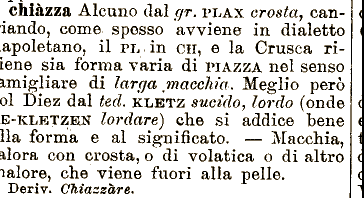 chiàzza Alcuno dal gr. PLAX crosta, can-
iando, come spesso avviene in dialetto
apoletano, il PL in CH, e la Crusca ri-
iene sia forma varia di PIAZZA nel senso
amigliare di larga macchia. Meglio però
ol Diez dal ted. KLETZ sucido, lordo (onde
E-KLETZEN lordare) che si addice bene
lla forma e al significato. — Macchia,
alora con crosta, o di volatica o di altro
alore, che viene fuori alla pelle.
Deriv. Chiazzàre.